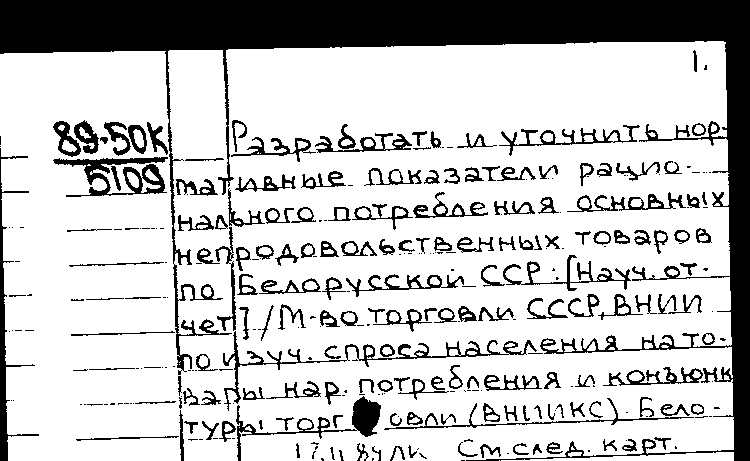 1.
89-50К
5109
Разработать и уточнить нор-
мативные показатели рацио-
нального потребления основных
непродовольственных товаров
по Белорусской ССР: [Науч. от-
чет] / М-во торговли СССР, ВНИИ
по изуч. спроса населения на то-
вары нар. потребления и конъюнк
туры торговли (ВНИИКС). Бело-
См. след. карт.